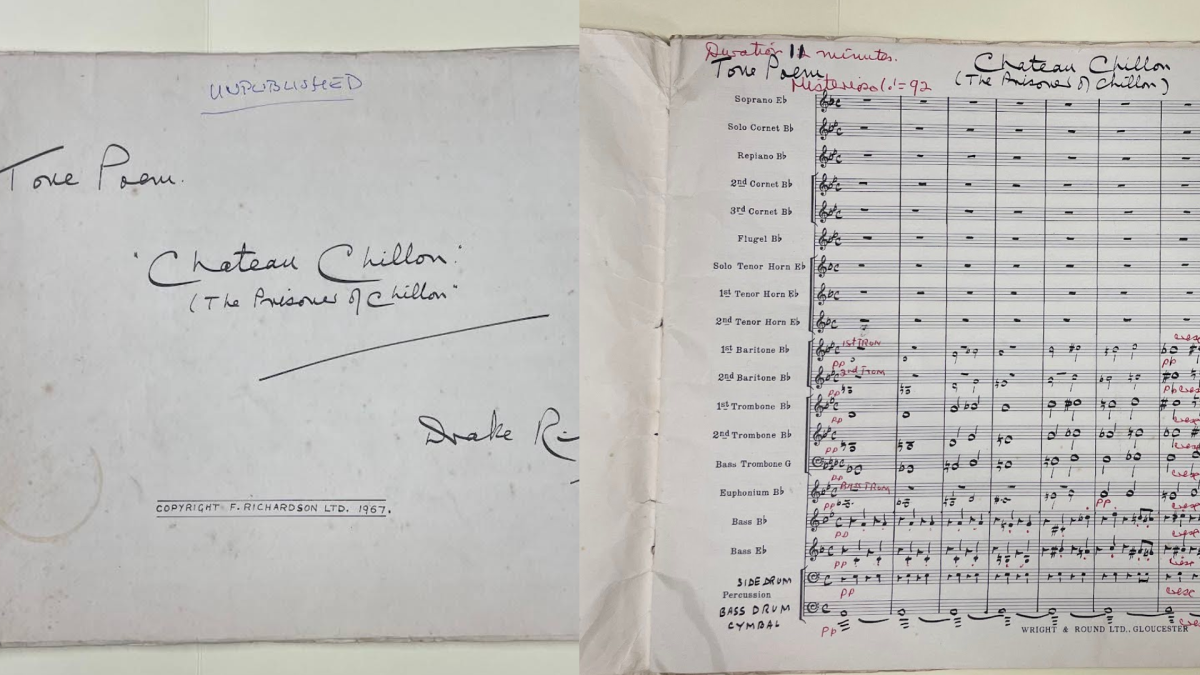 UNPUBLISHED
Tone Poem.
'Chateau Chillon.'
(The Prisoner of Chillon"
Drake Ri
COPYRIGHT F. RICHARDSON LTD. 1967.
Duration 11 minutes.
Tone Poem
Chateau Chillon
Misterioso ♩=92
(The Prisoner of Chillon)
Soprano E♭
Solo Cornet B♭
Repiano B♭
2nd Cornet B♭
3rd Cornet B♭
Flugel B♭
Solo Tenor Horn E♭
1st Tenor Horn E♭
2nd Tenor Horn E♭
cresc
1st Baritone B♭ 1st Trom
pp pp
2nd Baritone B♭ 2nd Trom
pp pp cresc
1st Trombone B♭
pp cresc
2nd Trombone B♭
pp cresc
Bass Trombone G
pp cresc
Euphonium B♭ Bass Trom
pp pp cresc
Bass B♭
pp cresc
Bass E♭
pp cresc
SIDE DRUM
pp cresc
Percussion
BASS DRUM
CYMBAL
pp cresc
WRIGHT & ROUND LTD., GLOUCESTER